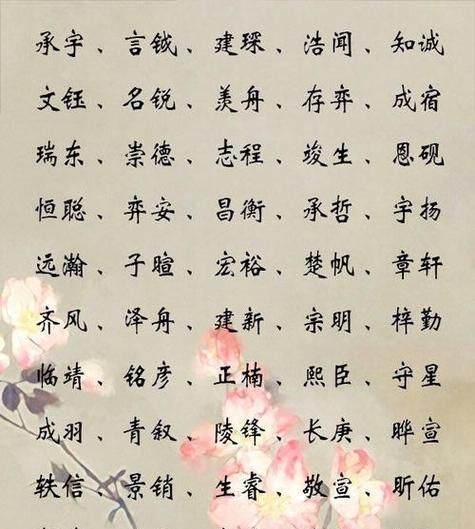 承宇、言钺、建琛、浩闻、知诚
文钰、名锐、羡舟、存弈、成宿
瑞东、崇德、志程、竣生、恩砚
恒聪、弈安、昌衡、承哲、宇扬
远瀚、子暄、宏裕、楚帆、章轩
齐风、泽舟、建新、宗明、梓勤
临靖、铭彦、正楠、熙臣、守星
成羽、青叙、陵锋、长庚、晔宣
轶信、景销、生睿、敬宣、昕佑